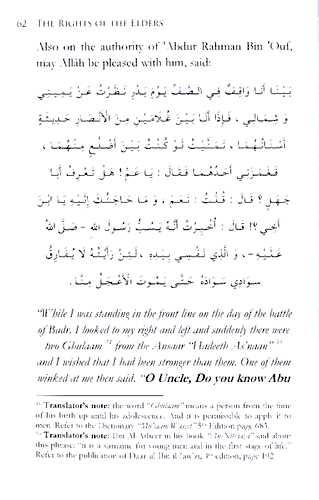 62 THE RIGHTS OF THE ELDERS
Also on the authority of 'Abdur Rahman Bin 'Ouf,
may Allâh be pleased with him, said:
بَيْنَا أَنَا وَاقِفٌ فِي الصَّفِّ يَوْمَ بَدْرٍ نَظَرْتُ عَنْ يَمِينِي
وَ شِمَالِي ، فَإِذَا أَنَا بَيْنَ غُلَامَيْنِ مِنَ الْأَنْصَارِ حَدِيثَةٍ
أَسْنَانُهُمَا ، تَمَنَّيْتُ لَوْ كُنْتُ بَيْنَ أَضْلَعَ مِنْهُمَا ،
فَغَمَزَنِي أَحَدُهُمَا فَقَالَ : يَا عَمِّ! هَلْ تَعْرِفُ أَبَا
جَهْلٍ؟ قَالَ : قُلْتُ : نَعَمْ ، وَ مَا حَاجَتُكَ إِلَيْهِ يَا ابْنَ
أَخِي؟! قَالَ : أُخْبِرْتُ أَنَّهُ يَسُبُّ رَسُولَ اللهِ - صَلَّى اللهُ
عَلَيْهِ - ، وَ الَّذِي نَفْسِي بِيَدِهِ ، لَئِنْ رَأَيْتُهُ لَا يُفَارِقُ
سَوَادِي سَوَادَهُ حَتَّى يَمُوتَ الْأَعْجَلُ مِنَّا.
"While I was standing in the front line on the day of the battle
of Badr, I looked to my right and left and suddenly there were
two Ghulaam from the Ansaar "Hadeeth As'naan"
and I wished that I had been stronger than them. One of them
winked at me then said, "O Uncle, Do you know Abu
Translator's note: the word "Ghulaam" means a person from the time
of his birth up until his adolescence. And it is permissible to apply it to
men. Refer to the Dictionary Edition page 685.
Translator's note: Ibn Al-Atheer in his book said about
this phrase: "it is a surname for young men and in the first stage of life."
Refer to the publication of Daar al edition, page 192